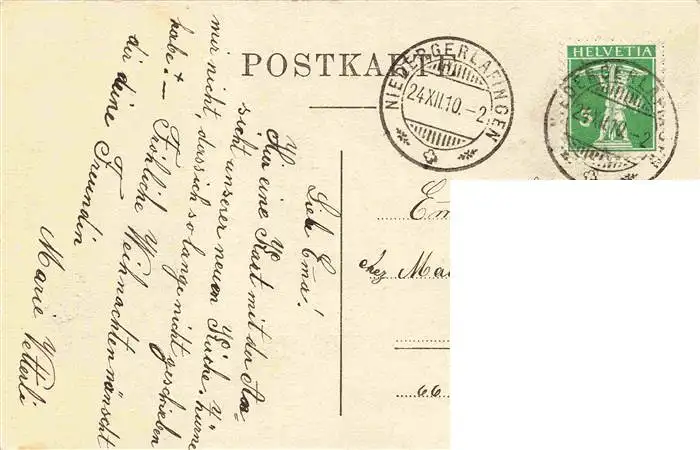 POSTKARTE
NIEDERGERLAFINGEN
24.XII.10.-2
HELVETIA
NIEDERGERLAFINGEN
24.XII.10.-2
Lieb Ema!
Hier eine Kart mit der An-
sicht unserer neuen Kirche. Zürne
mir nicht, dass ich so lange nicht geschrieben
habe. -
Fröhliche Weihnachten wünscht
dir deine Freundin
Marie Vetterli
Em
chez Ma
66